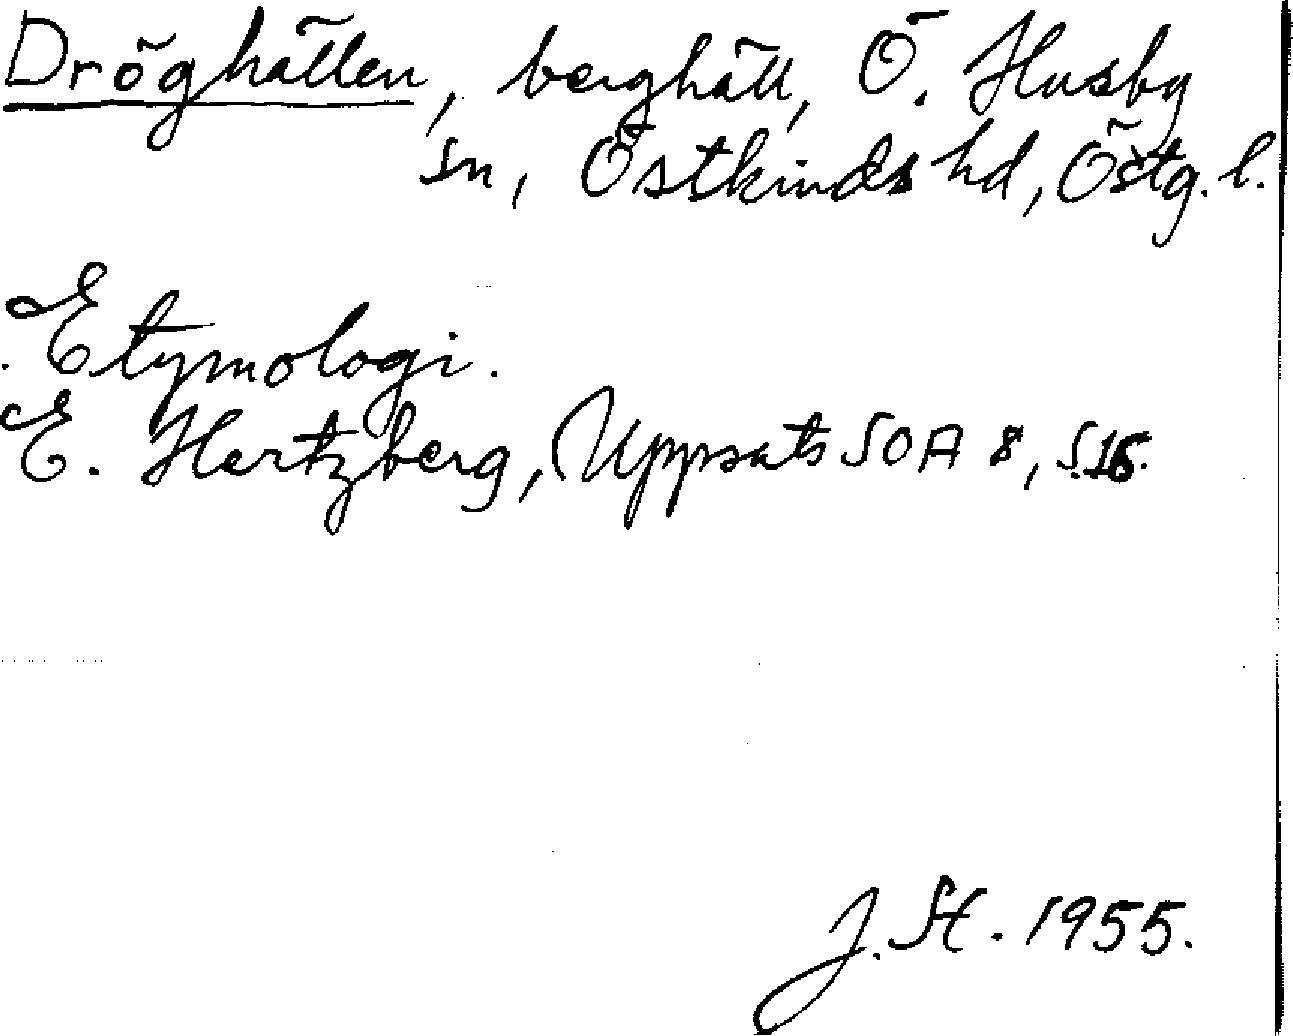 Dröghällen, berghäll, Ö. Husby
sn, Östkinds hd, Östg. l.
Etymologi.
E. Hertzberg, Uppsats SOA 8, S.16.
J. St. 1955.